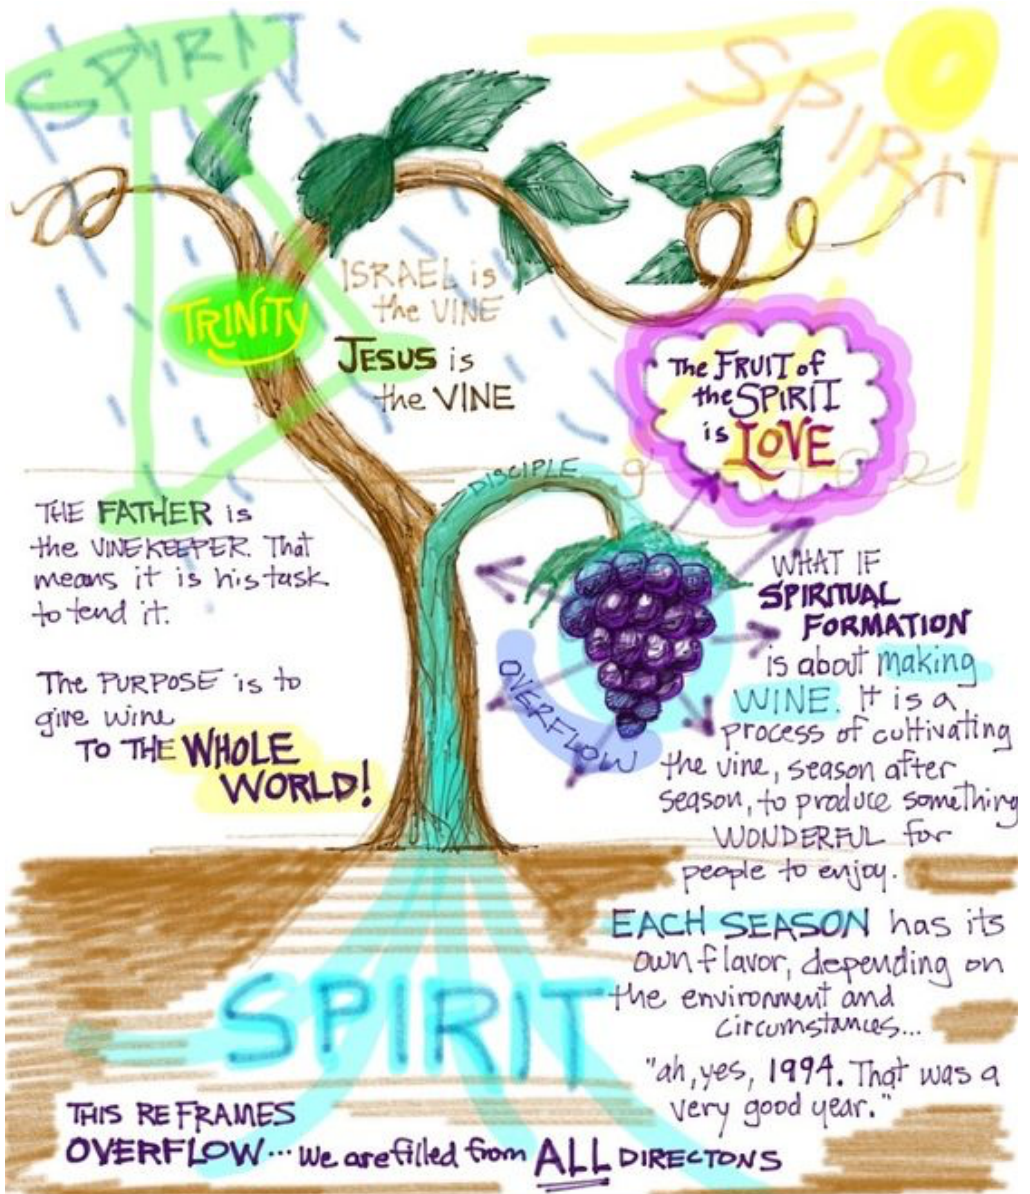 SPIRIT
SPIRIT
TRINITY
ISRAEL is
the VINE
JESUS is
the VINE
The FRUIT of
the SPIRIT
is LOVE
DISCIPLE
THE FATHER is
the VINEKEEPER. That
means it is his task
to tend it.
The PURPOSE is to
give wine
TO THE WHOLE
WORLD!
OVERFLOW
WHAT IF
SPIRITUAL
FORMATION
is about making
WINE. It is a
process of cultivating
the vine, season after
season, to produce something
WONDERFUL for
people to enjoy.
EACH SEASON has its
own flavor, depending on
the environment and
circumstances...
"ah, yes, 1994. That was a
very good year."
SPIRIT
THIS REFRAMES
OVERFLOW... we are filled from ALL DIRECTONS